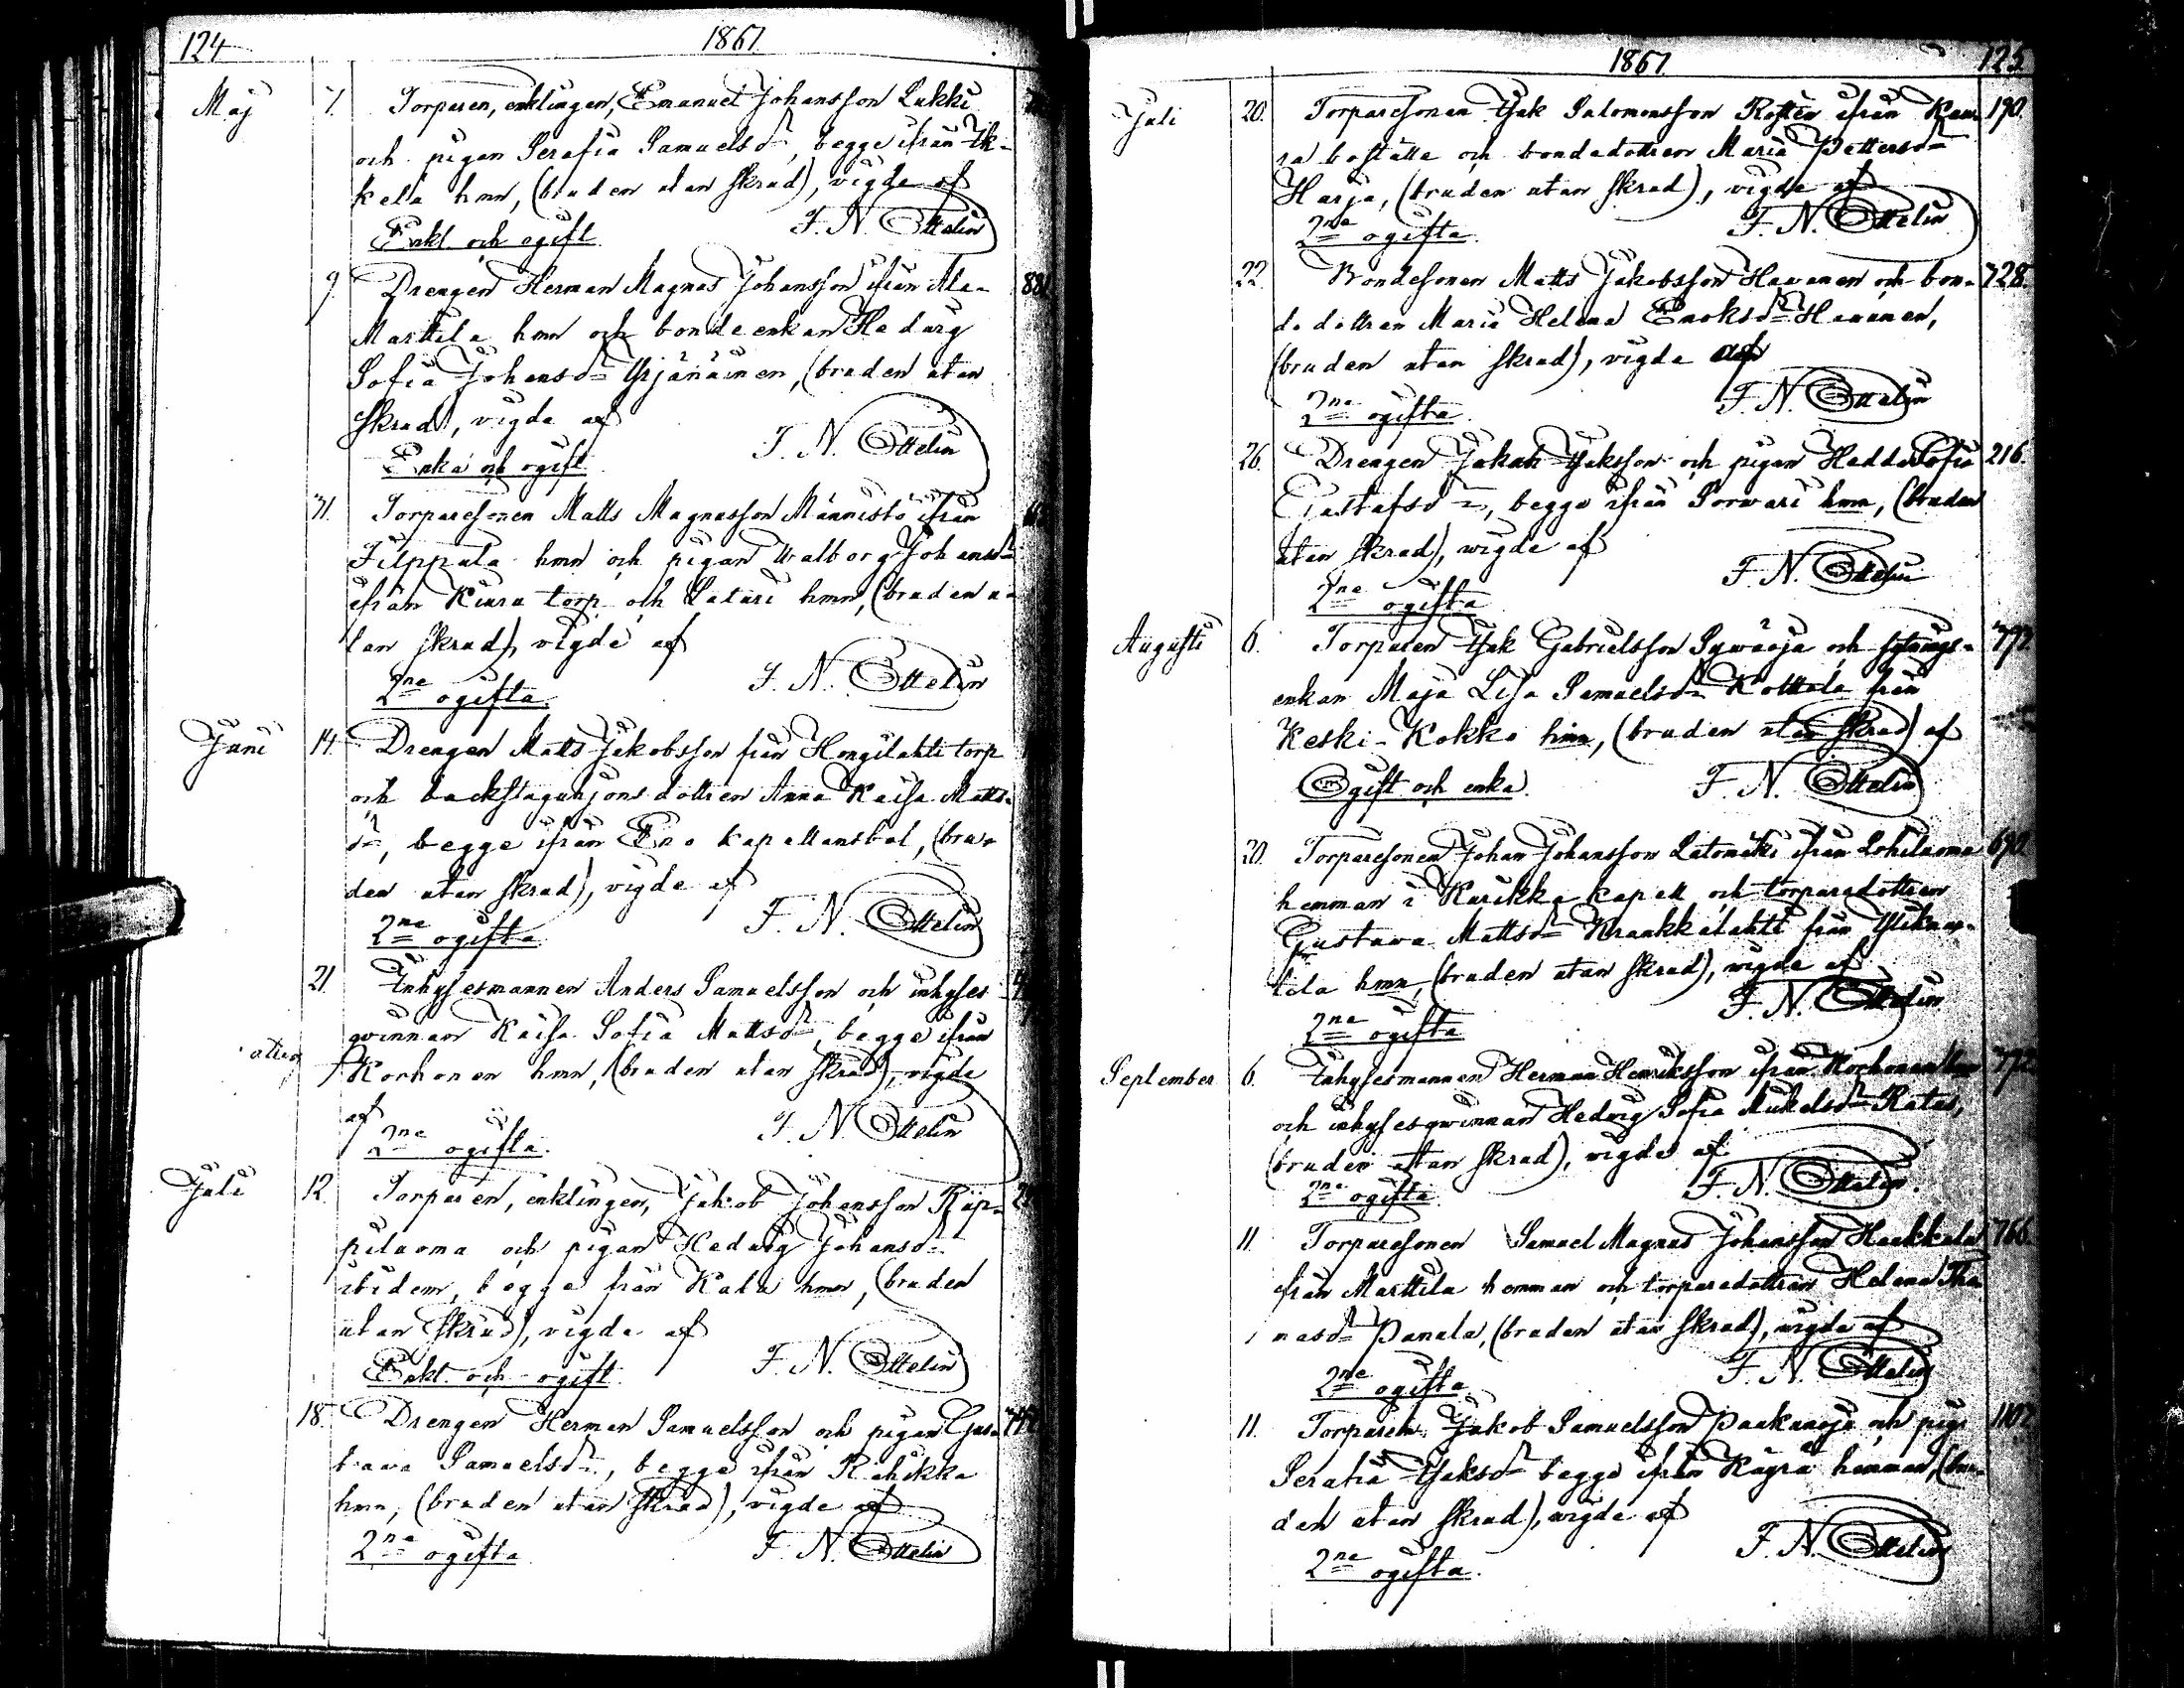 124
1861
Maj 7. Torparen, enklingen, Emanuel Johansson Lukki
och pigan Serafia Samuelsdr, begge ifrån Ik-
kelä hmn, (bruden utan skrud), vigde af
Enkl. och ogift. F. N. Ottelin
9. Drengen Herman Magnus Johansson ifrån Ala- 881
Marttila hmn och bondeenkan Hedvig
Sofia Johansdr Yrjänäinen, (bruden utan
skrud), vigde af
F. N. Ottelin
Enka och ogift
31. Torparesonen Matts Magnusson Männistö ifrån
Filppula hmn och pigan Walborg Johansdr
ifrån Kiura torp och Latari hmn, (bruden u-
tan skrud), vigde af
2ne ogifta F. N. Ottelin
Juni 14. Drengen Matts Jakobsson från Hongilahti torp
och backstugusjonsdottren Anna Kaisa Matts-
dr, begge ifrån Eno kapellansbol, (bru-
den utan skrud), vigde af
2ne ogifta F. N. Ottelin
21 Inhysesmannen Anders Samuelsson och inhyses
qvinnan Kaisa Sofia Mattsdr, begge ifrån
Korhonen hmn, (bruden utan skrud), vigde
af
2ne ogifta. F. N. Ottelin
Juli 12. Torparen, enklingen, Jakob Johansson Riip-
piluoma och pigan Hedvig Johansdr
ibidem, begge från Kala hmn, (bruden
utan skrud), vigde af
Enkl. och ogift. F. N. Ottelin
18. Drengen Herman Samuelsson och pigan Gus-
tava Samuelsdr, begge ifrån Rahikka
hmn, (bruden utan skrud), vigde af
2ne ogifta F. N. Ottelin
1861 125
Juli 20. Torparesonen Isak Salomonsson Rosten ifrån Kau- 190.
ra boställe och bondedottren Maria Pettersdr
Harja, (bruden utan skrud), vigde af
2ne ogifta. F. N. Ottelin
22. Bondesonen Matts Jakobsson Havunen och bon- 728.
dedottren Maria Helena Enoksdr Hannen,
(bruden utan skrud), vigde af
2ne ogifta. F. N. Ottelin
26. Drengen Jakob Isaksson och pigan Hedda Sofia 216.
Gustafsdr, begge ifrån Sorvari hmn, (bruden
utan skrud), vigde af
2ne ogifta F. N. Ottelin
Augusti 6. Torparen Isak Gabrielsson Sywäoja och sytnings- 777.
enkan Maja Lisa Samuelsdr Kottola från
Keski-Kokko hmn, (bruden utan skrud) af
Ogift och enka. F. N. Ottelin
20. Torparesonen Johan Johansson Latomäki ifrån Lohiluoma 690
hemman i Kurikka kapell och torparedottren
Gustava Mattsdr Kraakkalahti från Yliknap-
tila hmn, (bruden utan skrud), vigde af
2ne ogifta F. N. Ottelin
September 6. Inhysesmannen Herman Henriksson ifrån Korhonen hmn 772
och inhysesqvinnan Hedvig Sofia Mikelsdr Ratas,
(bruden utan skrud), vigde af
2ne ogifta. F. N. Ottelin.
11. Torparesonen Samuel Magnus Johansson Haakkala 766.
från Marttila hemman och torparedottren Helena Tho-
masdr Panula, (bruden utan skrud), vigde af
2ne ogifta F. N. Ottelin
11. Torparen Jakob Samuelsson Paukunoja och piga 1102
Serafia Isaksdr begge ifrån Käyrä hemman, (bru-
den utan skrud), vigde af
2ne ogifta. F. N. Ottelin